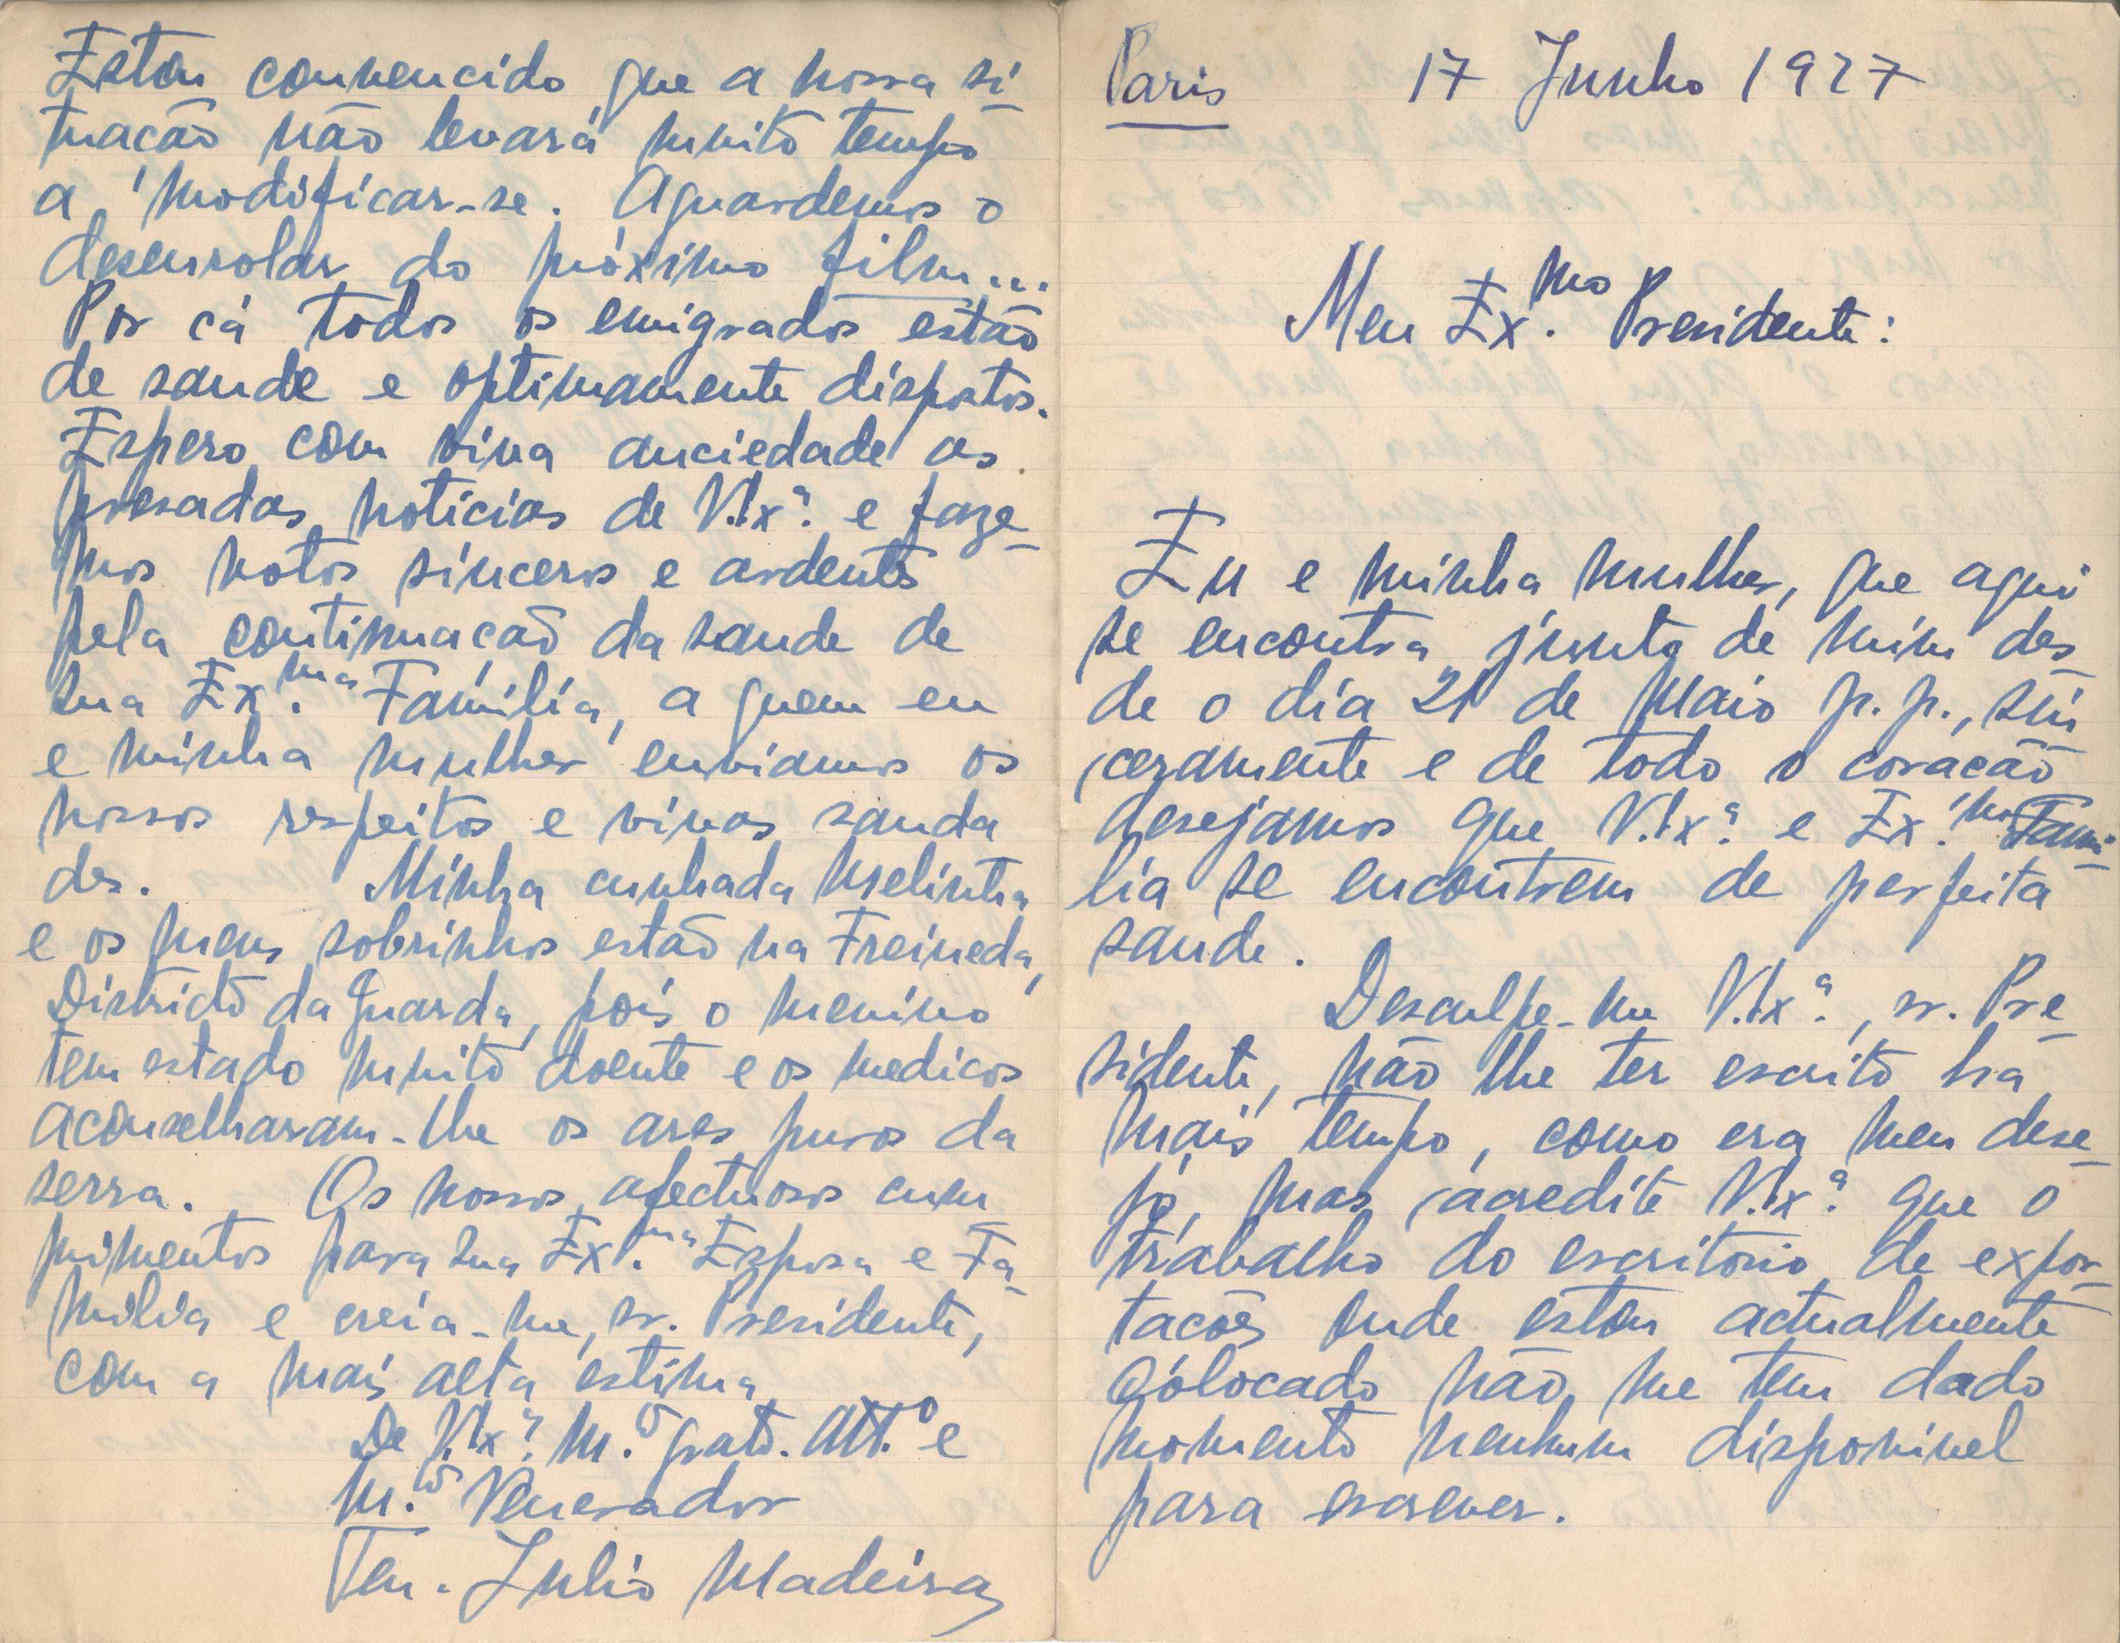 Paris 17 Junho 1927
Meu Ex.mo Presidente:
Eu e minha mulher, que aqui
se encontra junto de mim des-
de o dia 21 de Maio p.p., sin
ceramente e de todo o coracão
desejamos que V.Exª. e Ex.ma Fami-
lia se encontrem de perfeita
saude.
Desculpe-me V.Exª., sr. Pre-
sidente, não lhe ter escrito ha
mais tempo, como era meu dese-
jo, mas acredite V.Exª. que o
trabalho do escritorio de expor-
tacões onde estou actualmente
cólocado não me tem dado
momento nenhum disponivel
para escrever.
Estou convencido que a nossa si
tuacão não levará muito tempo
a modificar-se. Aguardemos o
desenrolar do próximo film...
Por cá todos os emigrados estão
de saude e optimamente dispostos.
Espero com viva anciedade as
presadas noticias de V.Exª. e faze-
mos votos sinceros e ardentes
pela continuacão da saude de
sua Ex.ma Familia, a quem eu
e minha mulher enviamos os
nossos respeitos e vivas sauda
des. Minha cunhada Melinha
e os meus sobrinhos estão na Freineda,
Districto da Guarda, pois o menino
tem estado muito doente e os medicos
aconselharam-lhe os ares puros da
serra. Os nossos afectuosos cum
primentos para sua Ex.ma Esposa e Fa-
milia e creia-me, sr. Presidente,
com a mais alta estima
De V.Exª. M.to grato. Att.o e
M.to Venerador
Ten. Julio Madeira